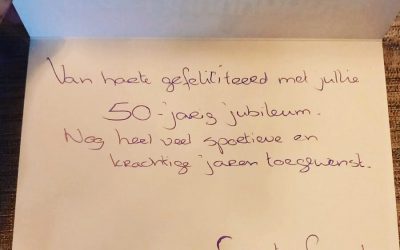 Van harte gefeliciteerd met jullie
50-jarig jubileum.
Nog heel veel sportieve en
krachtige jaren toegewenst.